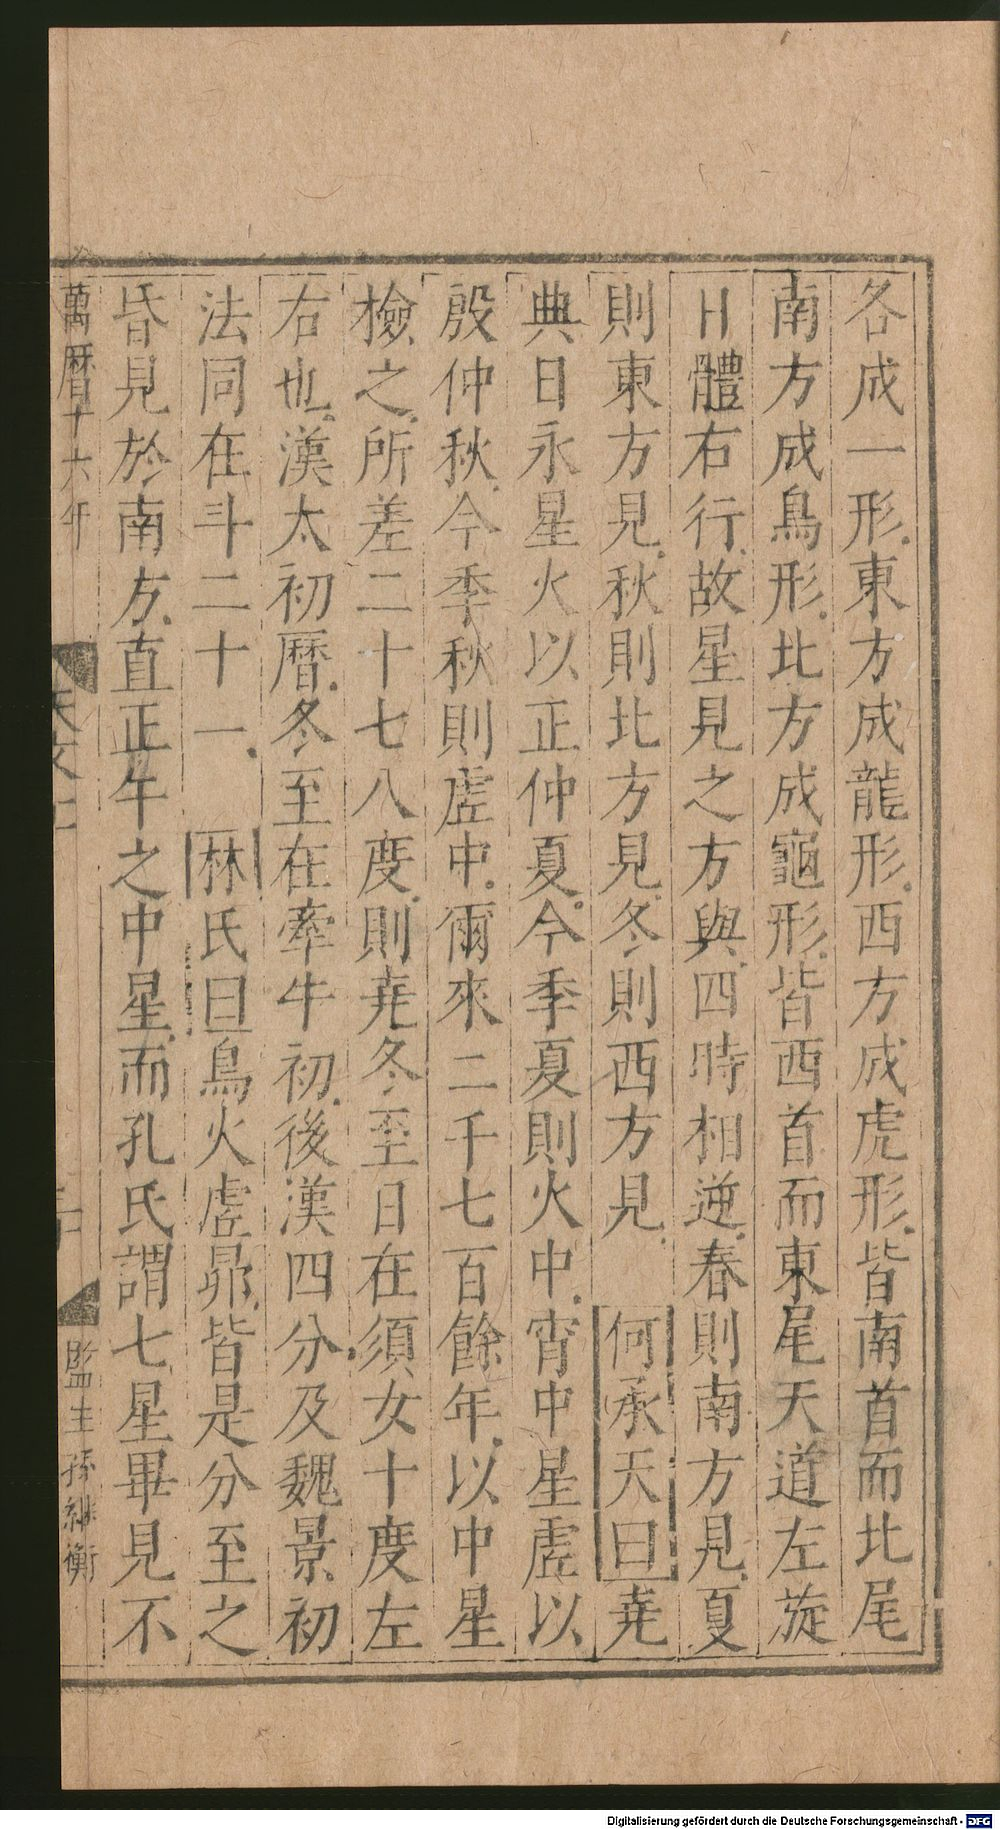 各成一形東方成龍形西方成虎形皆南首而北尾
南方成鳥形北方成龜形皆西首而東尾天道左旋
日體右行故星見之方與四時相逆春則南方見夏
則東方見秋則北方見冬則西方見 何承天曰堯
典日永星火以正仲夏今季夏則火中宵中星虛以
殷仲秋今季秋則虛中爾來二千七百餘年以中星
檢之所差二十七八度則堯冬至日在須女十度左
右也漢太初曆冬至在牽牛初後漢四分及魏景初
法同在斗二十一 林氏曰鳥火虛昴皆是分至之
昏見於南方直正午之中星而孔氏謂七星畢見不
萬曆十六年
天文
監生孫繼衡
Digitalisierung gefördert durch die Deutsche Forschungsgemeinschaft - DFG